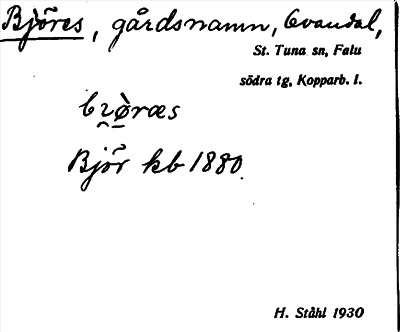 Björes, gårdsnamn, Ovandal,
St. Tuna sn, Falu
södra tg, Kopparb. l.
Björ kb 1880.
H. Ståhl 1930